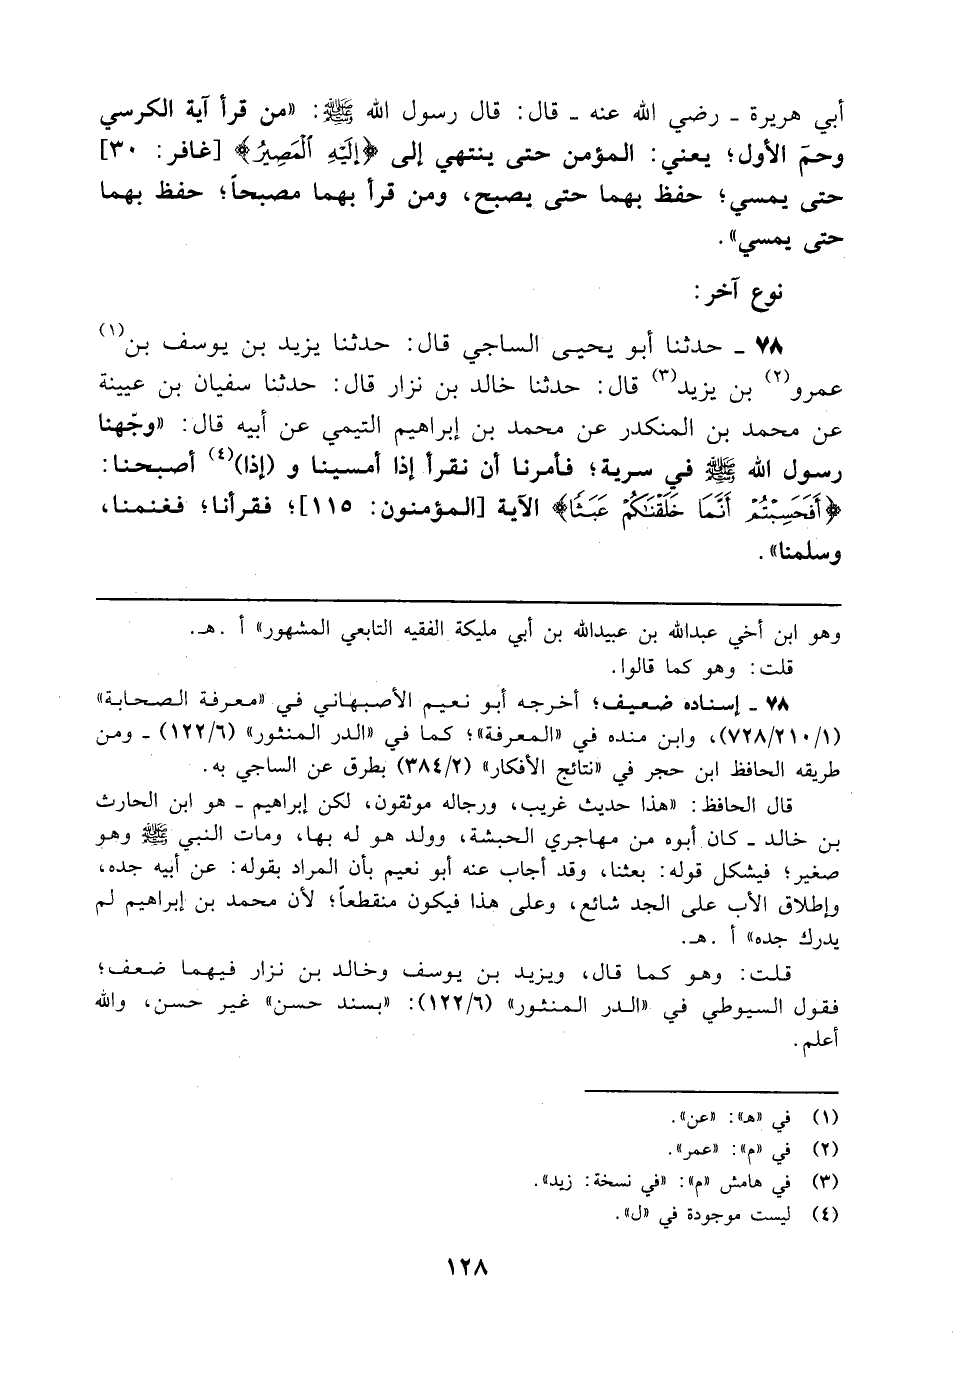 أبي هريرة ـ رضي الله عنه ـ قال: قال رسول الله ﷺ: «من قرأ آية الكرسي
وحمَ الأول؛ يعني: المؤمن حتى ينتهي إلى ﴿إِلَيْهِ ٱلْمَصِيرُ﴾ [غافر: ٣٠]
حتى يمسي؛ حفظ بهما حتى يصبح، ومن قرأ بهما مصبحاً؛ حفظ بهما
حتى يمسي».
نوع آخر:
٧٨ ـ حدثنا أبو يحيى الساجي قال: حدثنا يزيد بن يوسف بن(١)
عمرو(٢) بن يزيد(٣) قال: حدثنا خالد بن نزار قال: حدثنا سفيان بن عيينة
عن محمد بن المنكدر عن محمد بن إبراهيم التيمي عن أبيه قال: «وجّهنا
رسول الله ﷺ في سرية؛ فأمرنا أن نقرأ إذا أمسينا و (إذا)(٤) أصبحنا:
﴿أَفَحَسِبْتُمْ أَنَّمَا خَلَقْنَٰكُمْ عَبَثًا﴾ الآية [المؤمنون: ١١٥]؛ فقرأنا؛ فغنمنا،
وسلمنا».
وهو ابن أخي عبدالله بن عبيدالله بن أبي مليكة الفقيه التابعي المشهور» أ .هـ.
قلت: وهو كما قالوا.
٧٨ ـ إسناده ضعيف؛ أخرجه أبو نعيم الأصبهاني في «معرفة الصحابة»
(١/٢١٠/٧٢٨)، وابن منده في «المعرفة»؛ كما في «الدر المنثور» (٦/١٢٢) ـ ومن
طريقه الحافظ ابن حجر في «نتائج الأفكار» (٢/٣٨٤) بطرق عن الساجي به.
قال الحافظ: «هذا حديث غريب، ورجاله موثقون، لكن إبراهيم ـ هو ابن الحارث
بن خالد ـ كان أبوه من مهاجري الحبشة، وولد هو له بها، ومات النبي ﷺ وهو
صغير؛ فيشكل قوله: بعثنا، وقد أجاب عنه أبو نعيم بأن المراد بقوله: عن أبيه جده،
وإطلاق الأب على الجد شائع، وعلى هذا فيكون منقطعاً؛ لأن محمد بن إبراهيم لم
يدرك جده» أ .هـ.
قلت: وهو كما قال، ويزيد بن يوسف وخالد بن نزار فيهما ضعف؛
فقول السيوطي في «الدر المنثور» (٦/١٢٢): «بسند حسن» غير حسن، والله
أعلم.
(١) في «هـ»: «عن».
(٢) في «م»: «عمر».
(٣) في هامش «م»: «في نسخة: زيد».
(٤) ليست موجودة في «ل».
١٢٨